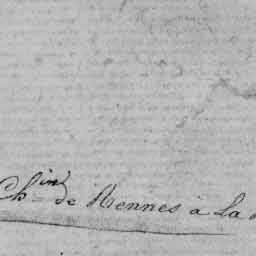 Chin de Rennes à La